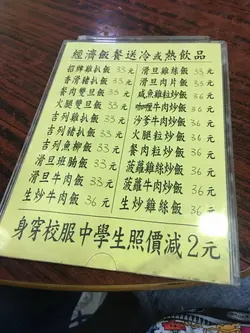 經濟飯餐送冷或熱飲品
招牌雞扒飯 33元
香滑豬扒飯 33元
餐肉雙旦飯 33元
火腿雙旦飯 33元
吉列雞扒飯 33元
吉列豬扒飯 33元
吉列魚柳飯 33元
滑旦班腩飯 33元
滑旦牛肉飯 33元
生炒牛肉飯 36元
滑旦雞絲飯 33元
滑旦肉片飯 33元
咸魚雞粒炒飯 36元
咖喱牛肉炒飯 36元
沙爹牛肉炒飯 36元
火腿雞粒炒飯 36元
餐肉雞粒炒飯 36元
菠蘿雞絲炒飯 36元
菠蘿牛肉炒飯 36元
生炒雞絲飯 36元
身穿校服中學生照價減2元